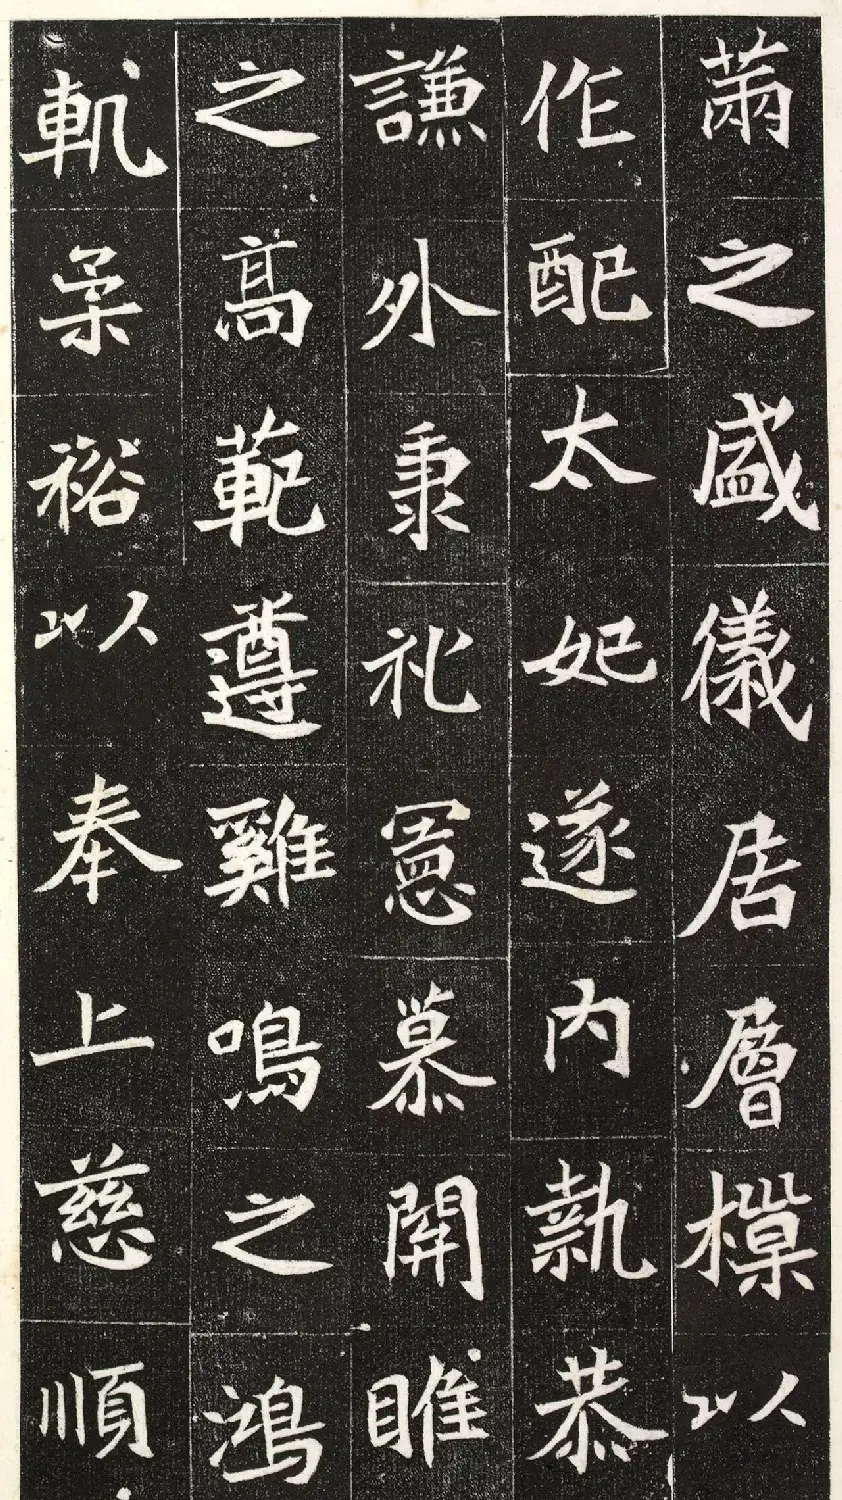 之盛儀居層以
作配太妃遂內執恭
謙外秉礼憲慕關雎
之高範遵雞鳴之鴻
軌柔裕以奉上慈順